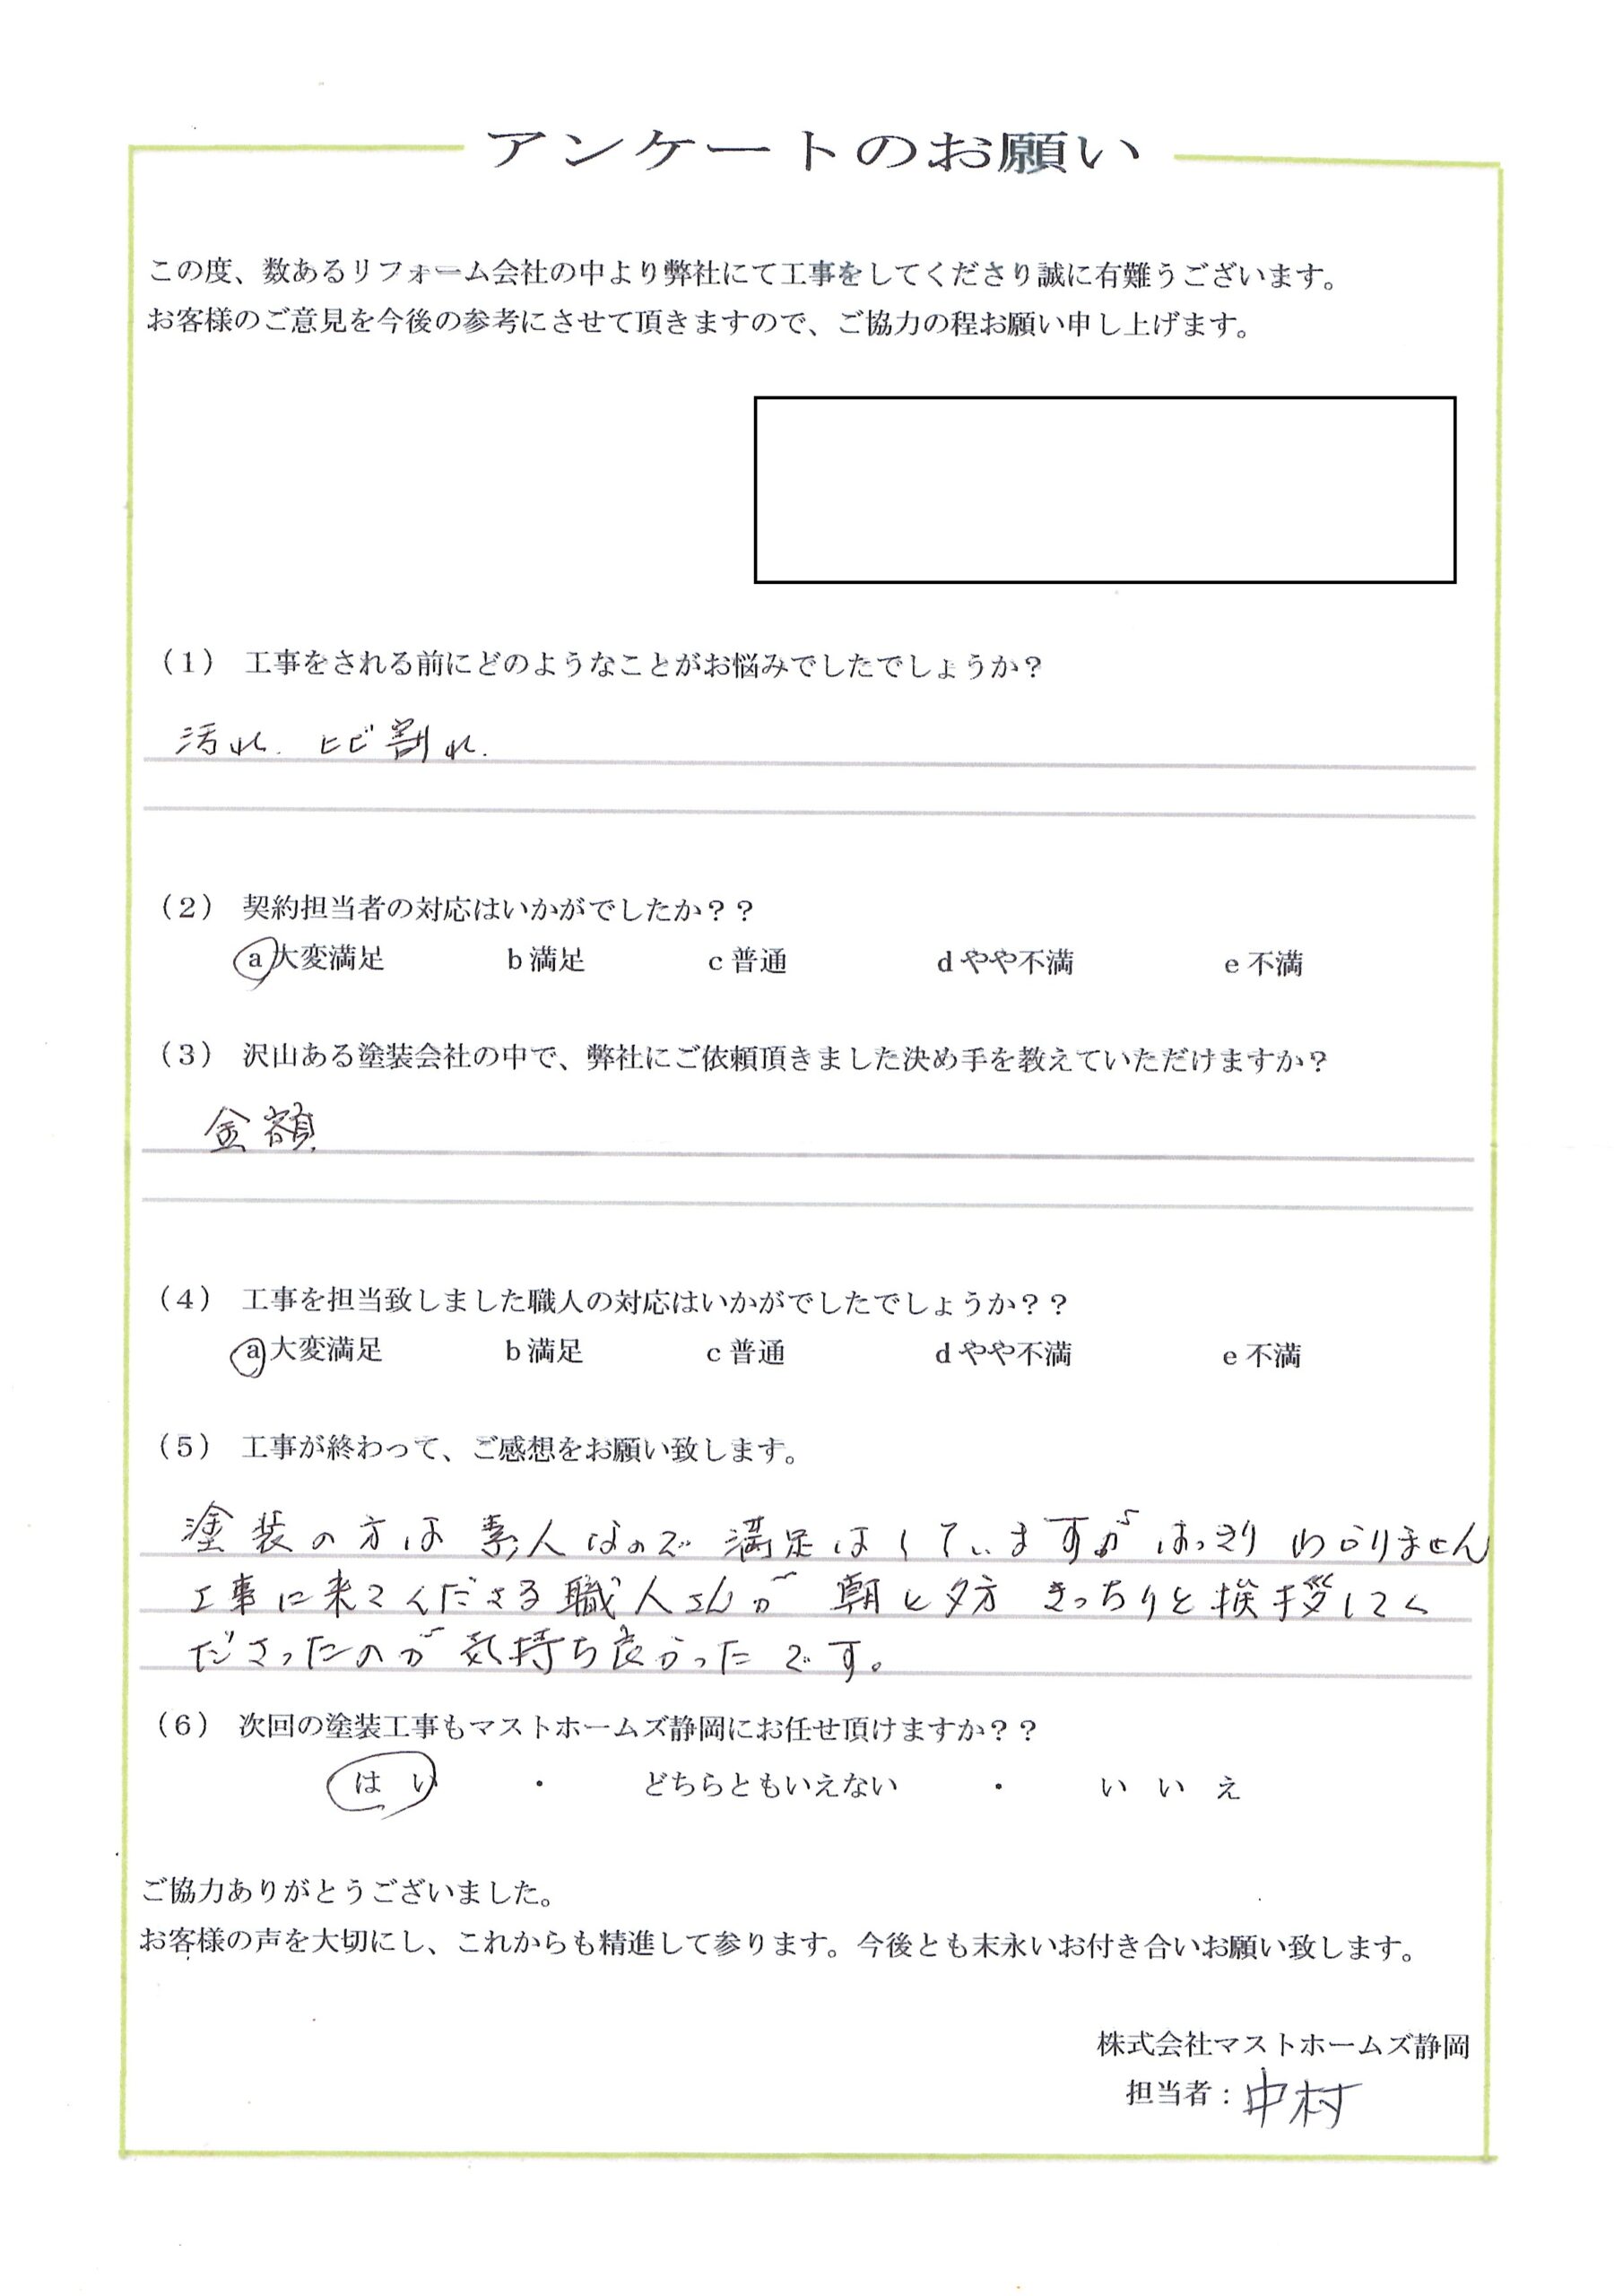 アンケートのお願い
この度、数あるリフォーム会社の中より弊社にて工事をしてくださり誠に有難うございます。
お客様のご意見を今後の参考にさせて頂きますので、ご協力の程お願い申し上げます。
（1） 工事をされる前にどのようなことがお悩みでしたでしょうか？
汚れ. ヒビ割れ.
（2） 契約担当者の対応はいかがでしたか？？
a 大変満足 b 満足 c 普通 d やや不満 e 不満
（3） 沢山ある塗装会社の中で、弊社にご依頼頂きました決め手を教えていただけますか？
金額
（4） 工事を担当致しました職人の対応はいかがでしたでしょうか？？
a 大変満足 b 満足 c 普通 d やや不満 e 不満
（5） 工事が終わって、ご感想をお願い致します。
塗装の方は素人なので満足はしていますがはっきりわかりません
工事に来てくださる職人さんが朝と夕方きっちりと挨拶してく
ださったのが気持ち良かったです。
（6） 次回の塗装工事もマストホームズ静岡にお任せ頂けますか？？
はい ・ どちらともいえない ・ いいえ
ご協力ありがとうございました。
お客様の声を大切にし、これからも精進して参ります。今後とも末永いお付き合いお願い致します。
株式会社マストホームズ静岡
担当者：中村